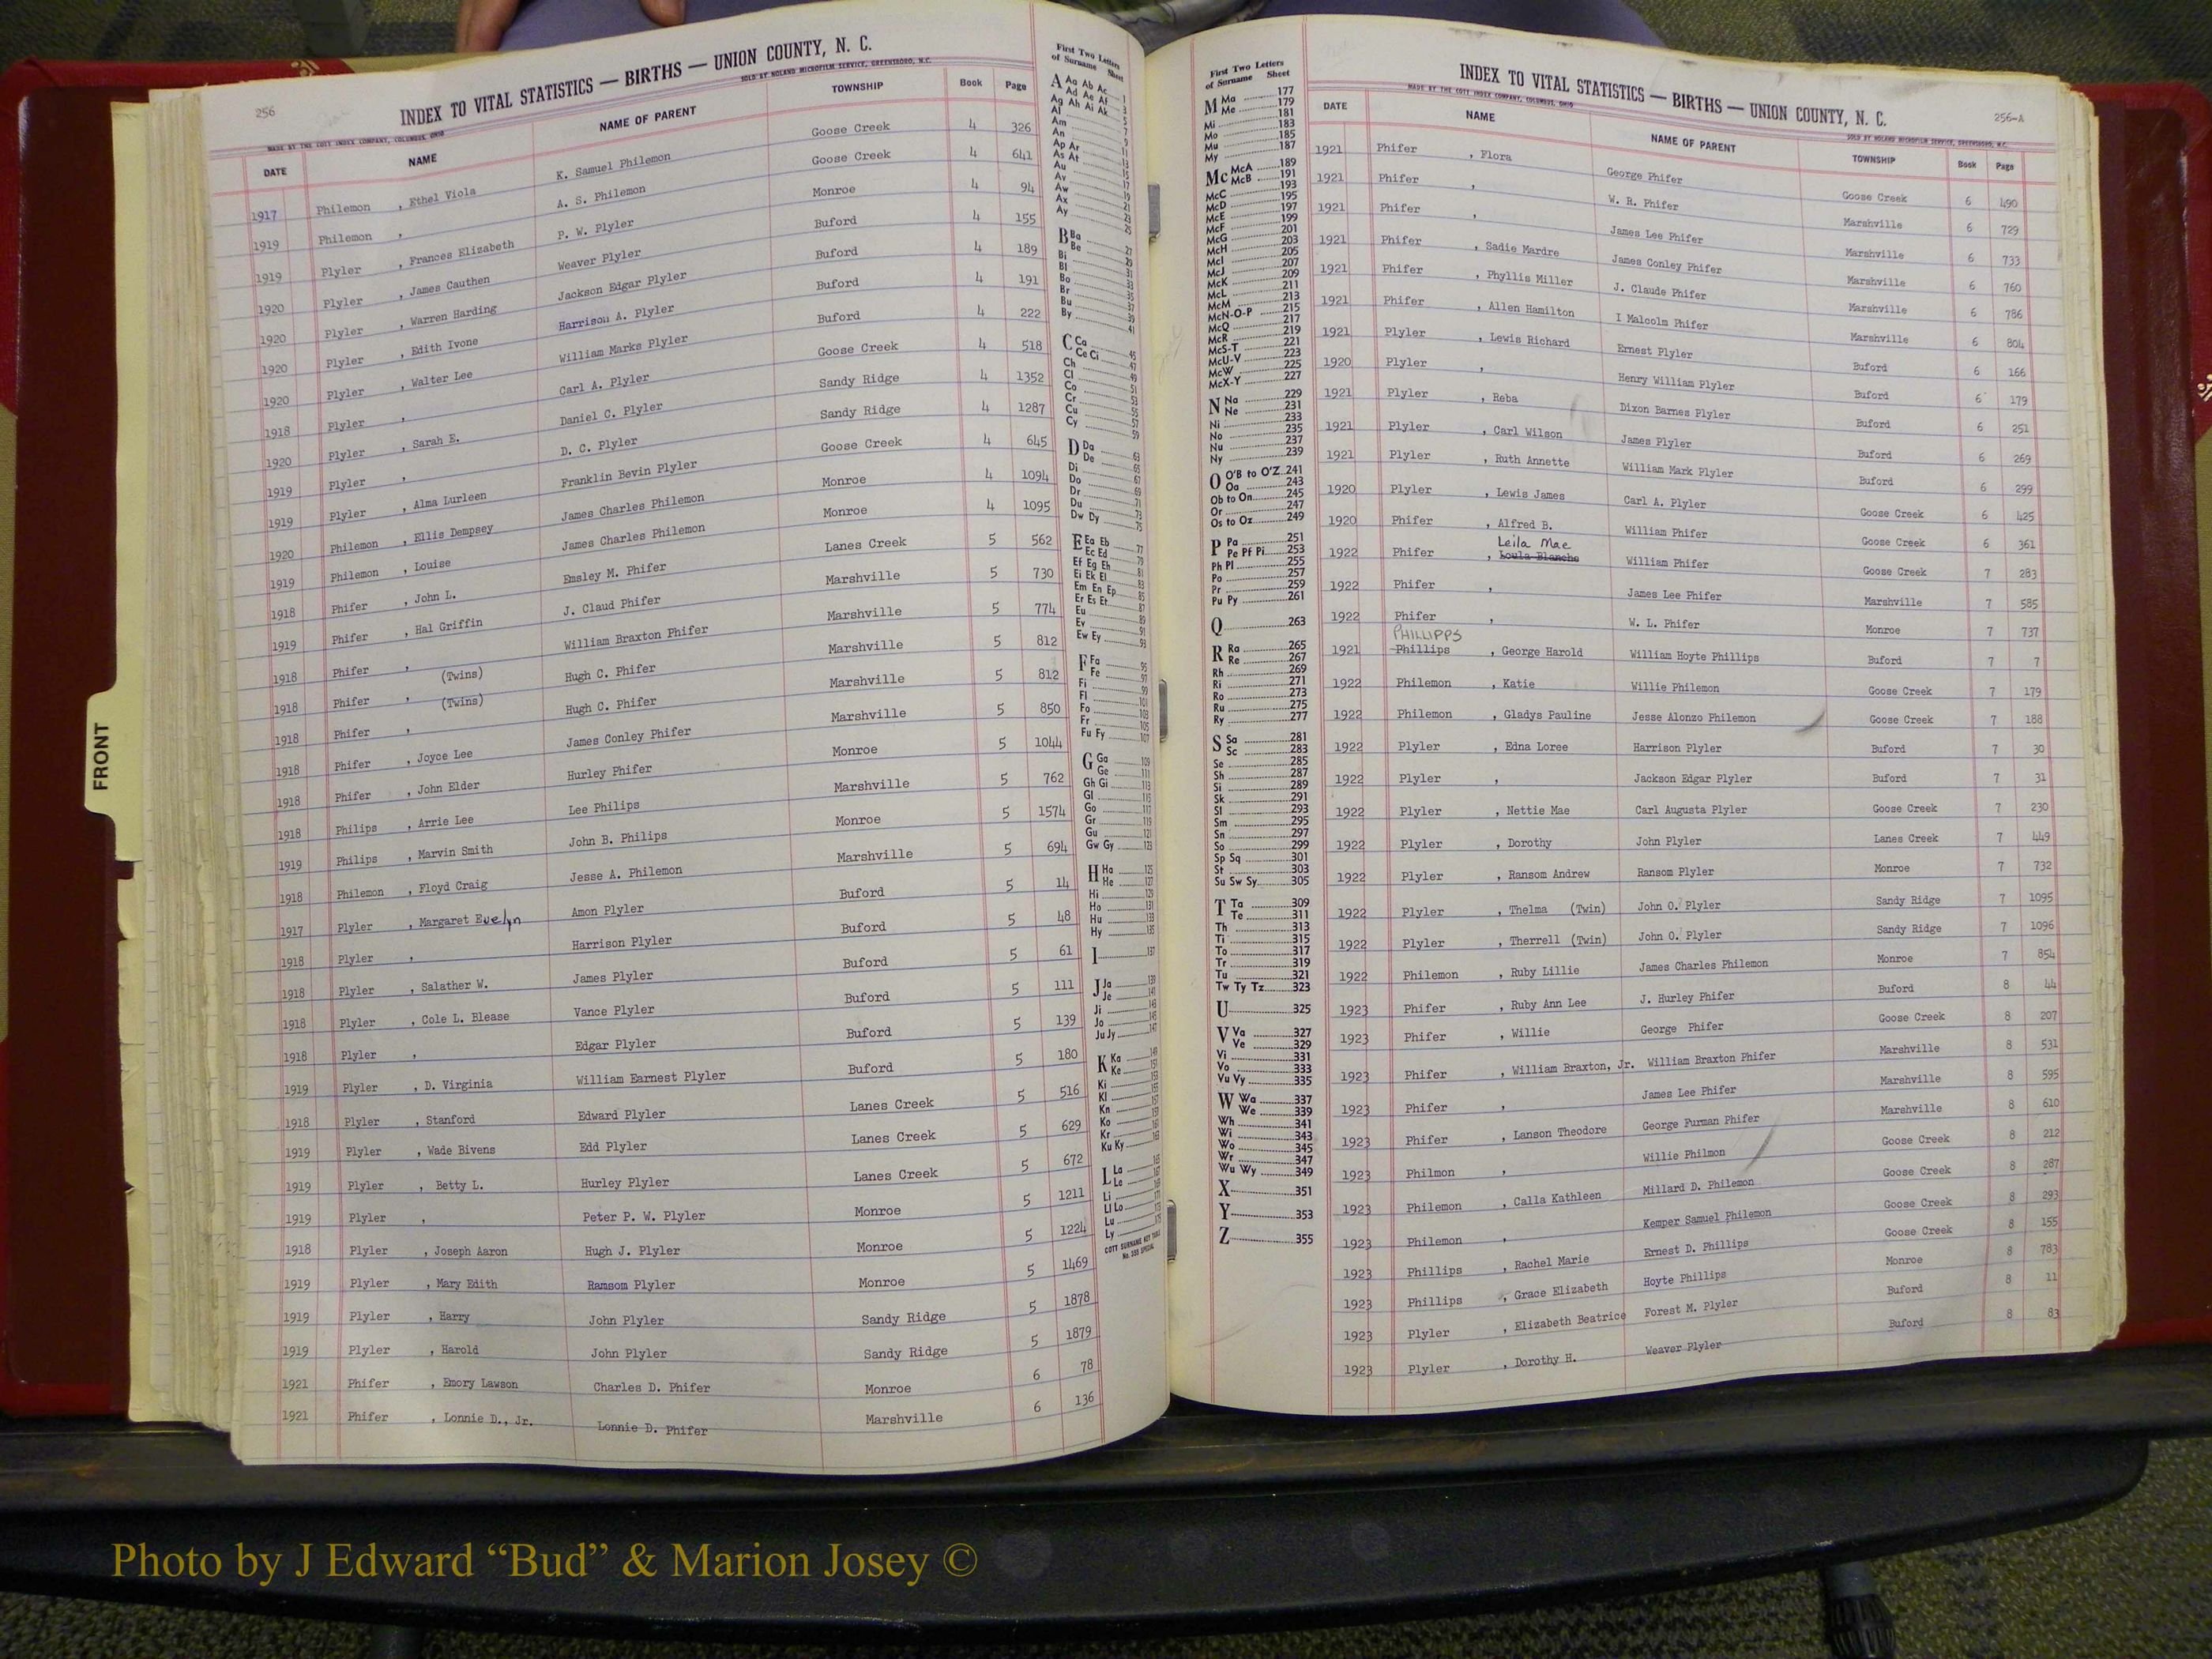 256
INDEX TO VITAL STATISTICS — BIRTHS — UNION COUNTY, N. C.
MADE BY THE COTT INDEX COMPANY, COLUMBUS, OHIO SOLD BY NOLAND MICROFILM SERVICE, GREENSBORO, N.C.
DATE NAME NAME OF PARENT TOWNSHIP Book Page
1917 Philemon , Ethel Viola K. Samuel Philemon Goose Creek 4 326
1919 Philemon , A. S. Philemon Goose Creek 4 641
1919 Plyler , Frances Elizabeth P. W. Plyler Monroe 4 94
1920 Plyler , James Cauthen Weaver Plyler Buford 4 155
1920 Plyler , Warren Harding Jackson Edgar Plyler Buford 4 189
1920 Plyler , Edith Ivone Harrison A. Plyler Buford 4 191
1920 Plyler , Walter Lee William Marks Plyler Buford 4 222
1918 Plyler , Carl A. Plyler Goose Creek 4 518
1920 Plyler , Sarah E. Daniel C. Plyler Sandy Ridge 4 1352
1919 Plyler , D. C. Plyler Sandy Ridge 4 1287
1919 Plyler , Alma Lurleen Franklin Bevin Plyler Goose Creek 4 645
1920 Philemon , Ellis Dempsey James Charles Philemon Monroe 4 1094
1919 Philemon , Louise James Charles Philemon Monroe 4 1095
1918 Phifer , John L. Emsley M. Phifer Lanes Creek 5 562
1919 Phifer , Hal Griffin J. Claud Phifer Marshville 5 730
1918 Phifer , William Braxton Phifer Marshville 5 774
1918 Phifer , (Twins) Hugh C. Phifer Marshville 5 812
1918 Phifer , (Twins) Hugh C. Phifer Marshville 5 812
1918 Phifer , Joyce Lee James Conley Phifer Marshville 5 850
1918 Phifer , John Elder Hurley Phifer Monroe 5 1044
1918 Philips , Arrie Lee Lee Philips Marshville 5 762
1919 Philips , Marvin Smith John B. Philips Monroe 5 1574
1918 Philemon , Floyd Craig Jesse A. Philemon Marshville 5 694
1917 Plyler , Margaret Evelyn Amon Plyler Buford 5 14
1918 Plyler , Harrison Plyler Buford 5 48
1918 Plyler , Salather W. James Plyler Buford 5 61
1918 Plyler , Cole L. Blease Vance Plyler Buford 5 111
1918 Plyler , Edgar Plyler Buford 5 139
1919 Plyler , D. Virginia William Earnest Plyler Buford 5 180
1918 Plyler , Stanford Edward Plyler Lanes Creek 5 516
1919 Plyler , Wade Bivens Edd Plyler Lanes Creek 5 629
1919 Plyler , Betty L. Hurley Plyler Lanes Creek 5 672
1919 Plyler , Peter P. W. Plyler Monroe 5 1211
1918 Plyler , Joseph Aaron Hugh J. Plyler Monroe 5 1224
1919 Plyler , Mary Edith Ramsom Plyler Monroe 5 1469
1919 Plyler , Harry John Plyler Sandy Ridge 5 1878
1919 Plyler , Harold John Plyler Sandy Ridge 5 1879
1921 Phifer , Emory Lawson Charles D. Phifer Monroe 6 78
1921 Phifer , Lonnie D., Jr. Lonnie D. Phifer Marshville 6 136
First Two Letters
of Surname Sheet
A Aa Ab Ac 1
Ad Ae Af 3
Ag Ah Ai Ak 5
Al 7
Am 9
An 11
Ap Ar 13
As At 15
Au 17
Av 19
Aw 21
Ax 23
Ay 25
B Ba 27
Be 29
Bi 31
Bl 33
Bo 35
Br 37
Bu 39
By 41
C Ca 45
Ce Ci 47
Ch 49
Cl 51
Co 53
Cr 55
Cu 57
Cy 59
D Da 63
De 65
Di 67
Do 69
Dr 71
Du 73
Dw Dy 75
E Ea Eb 77
Ec Ed 79
Ef Eg Eh 81
Ei Ek El 83
Em En Ep 85
Er Es Et 87
Eu 89
Ev 91
Ew Ey 93
F Fa 95
Fe 97
Fi 99
Fl 101
Fo 103
Fr 105
Fu Fy 107
G Ga 109
Ge 111
Gh Gi 113
Gl 115
Go 117
Gr 119
Gu 121
Gw Gy 123
H Ha 125
He 127
Hi 129
Ho 131
Hu 133
Hy 135
I 137
J Ja 139
Je 141
Ji 143
Jo 145
Ju Jy 147
K Ka 149
Ke 151
Ki 153
Kl 155
Kn 157
Ko 159
Kr 161
Ku Ky 163
L La 165
Le
Li
Ll Lo
Lu
Ly
COTT SURNAME KEY TABLE
FRONT
First Two Letters
of Surname Sheet
M Ma 177
Me 179
Mi 181
Mo 183
Mu 185
My 187
Mc McA 189
McB 191
McC 193
McD 195
McE 197
McF 199
McG 201
McH 203
McI 205
McJ 207
McK 209
McL 211
McM 213
McN-O-P 215
McQ 217
McR 219
McS-T 221
McU-V 223
McW 225
McX-Y 227
N Na 229
Ne 231
Ni 233
No 235
Nu 237
Ny 239
O O'B to O'Z 241
Oa 243
Ob to On 245
Or 247
Os to Oz 249
P Pa 251
Pe Pf Pi 253
Ph Pl 255
Po 257
Pr 259
Pu Py 261
Q 263
R Ra 265
Re 267
Rh 269
Ri 271
Ro 273
Ru 275
Ry 277
S Sa 281
Sc 283
Se 285
Sh 287
Si 289
Sk 291
Sl 293
Sm 295
Sn 297
So 299
Sp Sq 301
St 303
Su Sw Sy 305
T Ta 309
Te 311
Th 313
Ti 315
To 317
Tr 319
Tu 321
Tw Ty Tz 323
U 325
V Va 327
Ve 329
Vi 331
Vo 333
Vu Vy 335
W Wa 337
We 339
Wh 341
Wi 343
Wo 345
Wr 347
Wu Wy 349
X 351
Y 353
Z 355
INDEX TO VITAL STATISTICS — BIRTHS — UNION COUNTY, N. C. 256-A
MADE BY THE COTT INDEX COMPANY, COLUMBUS, OHIO SOLD BY NOLAND MICROFILM SERVICE, GREENSBORO, N.C.
DATE NAME NAME OF PARENT TOWNSHIP Book Page
1921 Phifer , Flora George Phifer Goose Creek 6 490
1921 Phifer , W. R. Phifer Marshville 6 729
1921 Phifer , James Lee Phifer Marshville 6 733
1921 Phifer , Sadie Mardre James Conley Phifer Marshville 6 760
1921 Phifer , Phyllis Miller J. Claude Phifer Marshville 6 786
1921 Phifer , Allen Hamilton I Malcolm Phifer Marshville 6 804
1921 Plyler , Lewis Richard Ernest Plyler Buford 6 166
1920 Plyler , Henry William Plyler Buford 6 179
1921 Plyler , Reba Dixon Barnes Plyler Buford 6 251
1921 Plyler , Carl Wilson James Plyler Buford 6 269
1921 Plyler , Ruth Annette William Mark Plyler Buford 6 299
1920 Plyler , Lewis James Carl A. Plyler Goose Creek 6 425
1920 Phifer , Alfred B. William Phifer Goose Creek 6 361
Leila Mae
1922 Phifer , Loula Blanche William Phifer Goose Creek 7 283
1922 Phifer , James Lee Phifer Marshville 7 585
1922 Phifer , W. L. Phifer Monroe 7 737
PHILLIPPS
1921 Phillips , George Harold William Hoyte Phillips Buford 7 7
1922 Philemon , Katie Willie Philemon Goose Creek 7 179
1922 Philemon , Gladys Pauline Jesse Alonzo Philemon Goose Creek 7 188
1922 Plyler , Edna Loree Harrison Plyler Buford 7 30
1922 Plyler , Jackson Edgar Plyler Buford 7 31
1922 Plyler , Nettie Mae Carl Augusta Plyler Goose Creek 7 230
1922 Plyler , Dorothy John Plyler Lanes Creek 7 449
1922 Plyler , Ransom Andrew Ransom Plyler Monroe 7 732
1922 Plyler , Thelma (Twin) John O. Plyler Sandy Ridge 7 1095
1922 Plyler , Therrell (Twin) John O. Plyler Sandy Ridge 7 1096
1922 Philemon , Ruby Lillie James Charles Philemon Monroe 7 854
1923 Phifer , Ruby Ann Lee J. Hurley Phifer Buford 8 44
1923 Phifer , Willie George Phifer Goose Creek 8 207
1923 Phifer , William Braxton, Jr. William Braxton Phifer Marshville 8 531
1923 Phifer , James Lee Phifer Marshville 8 595
1923 Phifer , Lanson Theodore George Furman Phifer Marshville 8 610
1923 Philmon , Willie Philmon Goose Creek 8 212
1923 Philemon , Calla Kathleen Millard D. Philemon Goose Creek 8 287
1923 Philemon , Kemper Samuel Philemon Goose Creek 8 293
1923 Phillips , Rachel Marie Ernest D. Phillips Goose Creek 8 155
1923 Phillips , Grace Elizabeth Hoyte Phillips Monroe 8 783
1923 Plyler , Elizabeth Beatrice Forest M. Plyler Buford 8 11
1923 Plyler , Dorothy H. Weaver Plyler Buford 8 83
Photo by J Edward “Bud” & Marion Josey ©